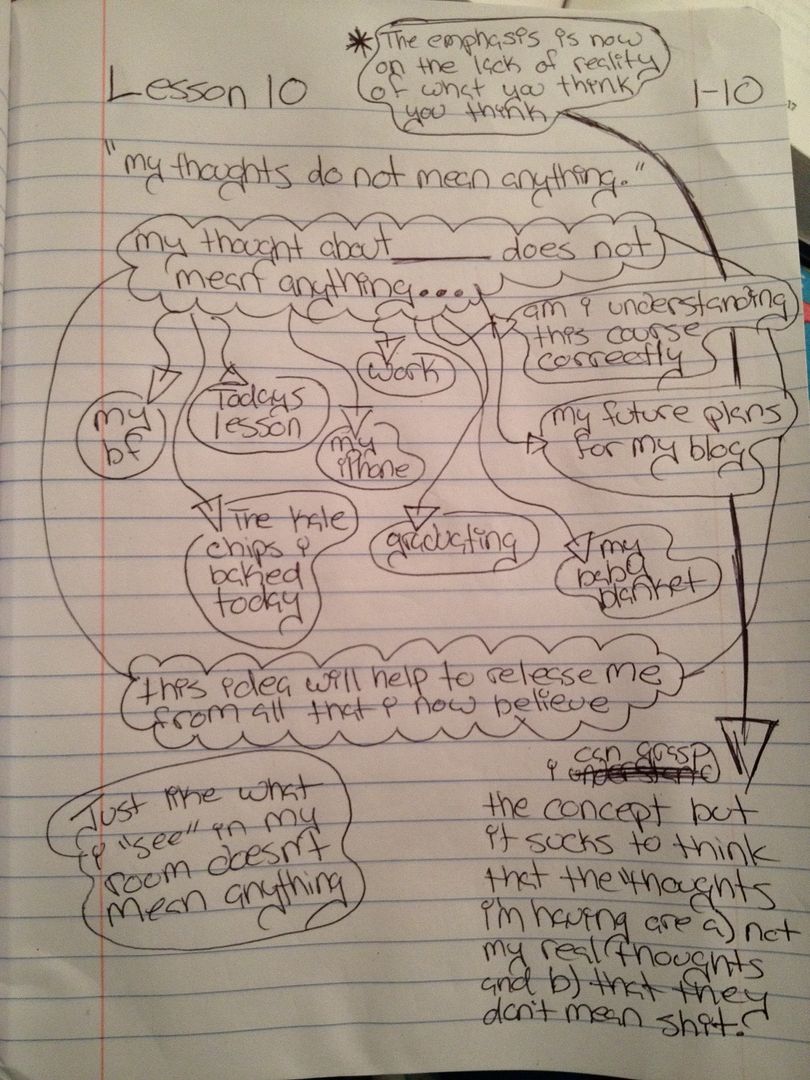 * The emphasis is now
on the lack of reality
of what you think
you think
Lesson 10
1-10
"my thoughts do not mean anything."
my thought about ______ does not
mean anything....
am i understanding
this course
correctly
work
my
bf
Todays
lesson
my
iPhone
my future plans
for my blog
The kale
chips i
baked
today
graduating
my
baby
blanket
this idea will help to release me
from all that i now believe
Just like what
i "see" in my
room doesn't
mean anything
can grasp
i understand
the concept but
it sucks to think
that the "thoughts
i'm having are a) not
my real thoughts
and b) that they
don't mean shit.